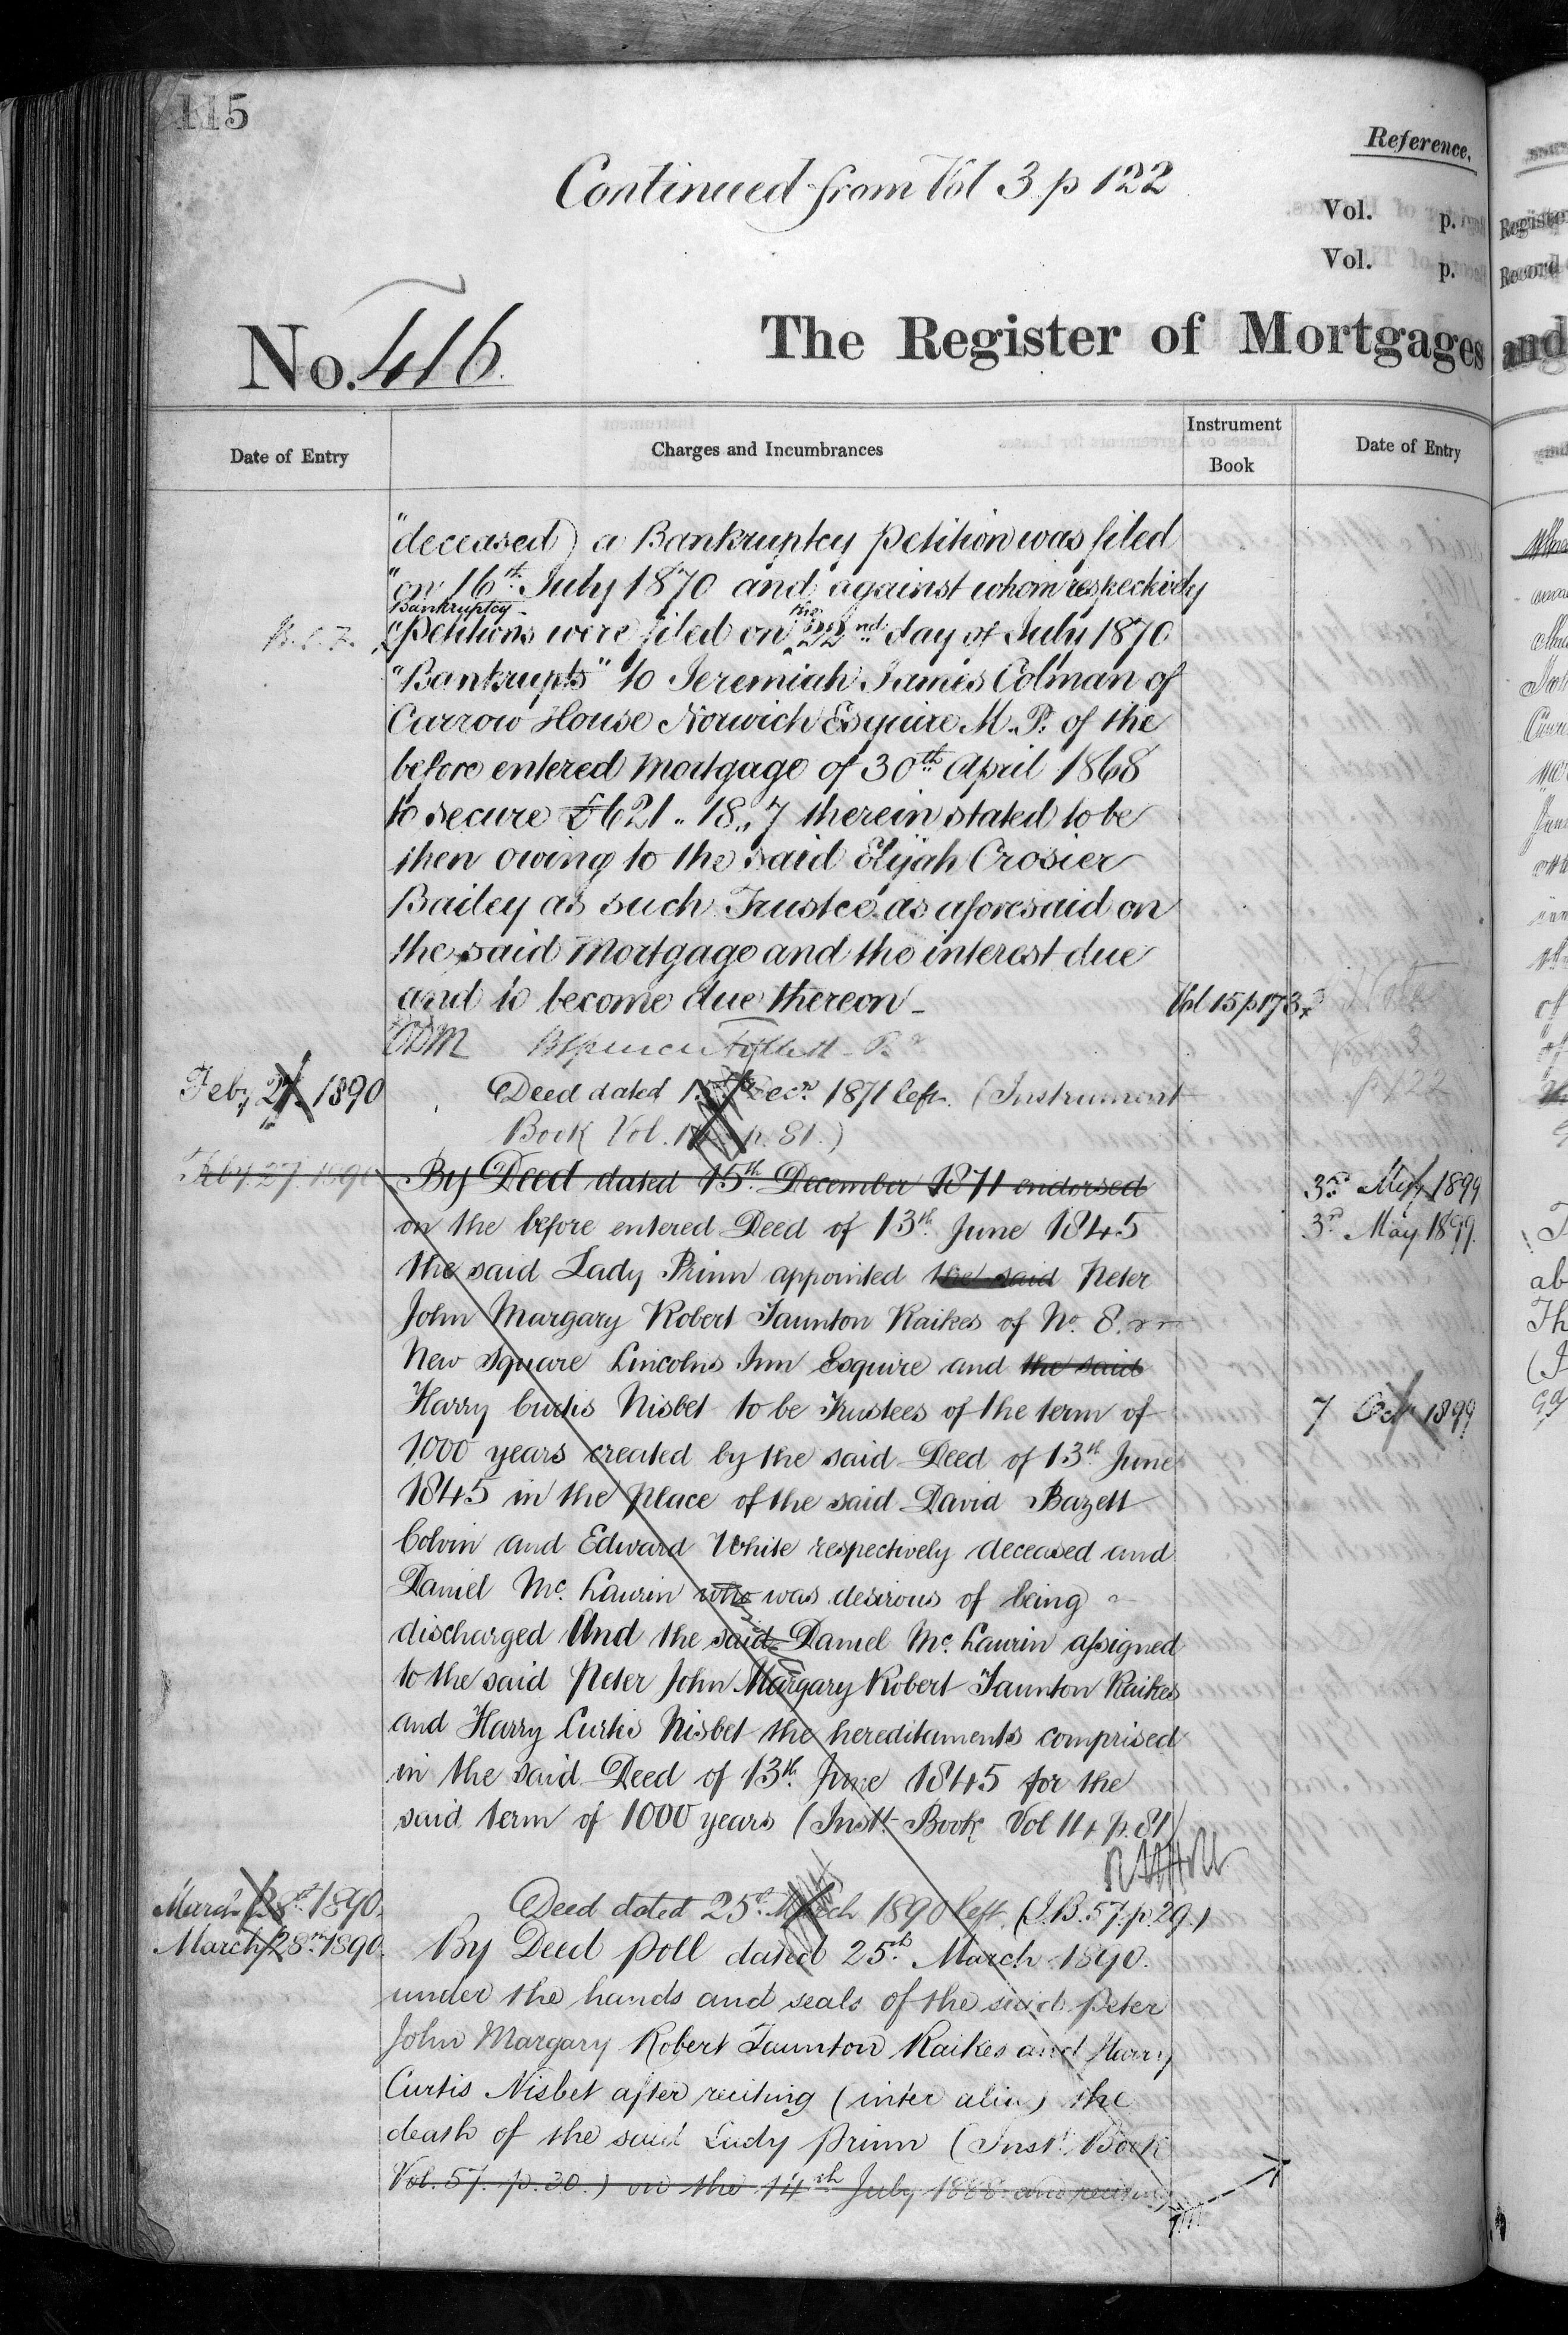 115
Reference.
Continued from Vol 3 p 122
Vol. p.
Vol. p.
No. 416.
The Register of Mortgages and
Date of Entry
Charges and Incumbrances
Instrument Book
Date of Entry
"deceased) a Bankruptcy petition was filed
"on 16th July 1870 and against whom respectively
Bankruptcy
"Petitions were filed on 22nd day of July 1870
"Bankrupts" to Jeremiah James Colman of
Carrow House Norwich Esquire M.P. of the
before entered Mortgage of 30th April 1868
to secure £621.. 18.. 7 therein stated to be
then owing to the said Elijah Crosier
Bailey as such Trustee as aforesaid on
the said Mortgage and the interest due
and to become due thereon -
Vol 15 p 173
Feby 27 1890
Deed dated 15th Decr 1871 left. (Instrument
Book Vol. 14 p. 81.)
Feby 27 1890
By Deed dated 15th December 1871 endorsed
3rd May 1899
on the before entered Deed of 13th June 1845
3rd May 1899.
the said Lady Prinn appointed the said Peter
John Margary Robert Taunton Raikes of No. 8.
New Square Lincolns Inn Esquire and the said
Harry Curtis Nisbet to be Trustees of the term of
7 Oct 1899
1000 years created by the said Deed of 13th June
1845 in the place of the said David Bazett
Colvin and Edward White respectively deceased and
Daniel Mc. Laurin who was desirous of being
discharged And the said Daniel Mc. Laurin assigned
to the said Peter John Margary Robert Taunton Raikes
and Harry Curtis Nisbet the hereditaments comprised
in the said Deed of 13th June 1845 for the
said term of 1000 years (Instt Book Vol 14 p. 81)
March 28th 1890.
Deed dated 25th March 1890 left. (I.B. 57. p. 29.)
March 28th 1890.
By Deed poll dated 25th March 1890.
under the hands and seals of the said Peter
John Margary Robert Taunton Raikes and Harry
Curtis Nisbet after reciting (inter alia) the
death of the said Lady Prinn (Inst. Book
Vol. 57. p. 30.) on the 14th July 1888 and reciting